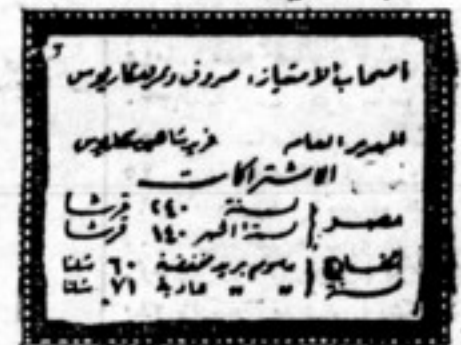 أصحاب الامتياز: صروف ونمر ومكاريوس
المدير العام
الاشتراكات
مصر لسنة ٢٤٠ قرشا
لستة أشهر ١٤٠ قرشا
الخارج رسوم بريد مخفضة ٦٠ شلنا
سنة " " عادية ٧١ شلنا